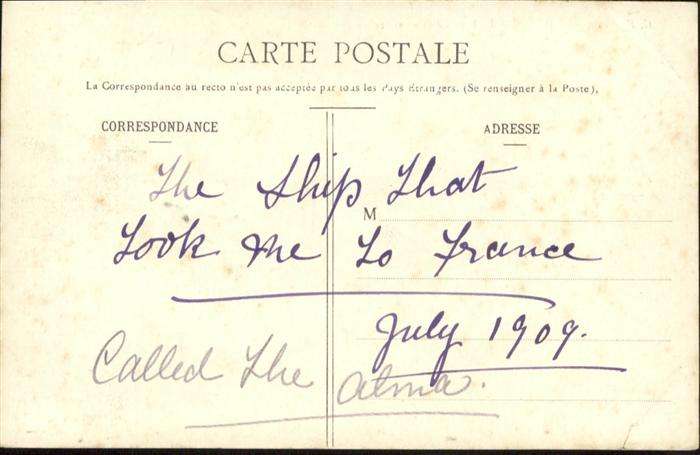 CARTE POSTALE
La Correspondance au recto n'est pas acceptée par tous les Pays Étrangers. (Se renseigner à la Poste).
CORRESPONDANCE
ADRESSE
The Ship that
M
took me to France
July 1909.
Called the Alma.